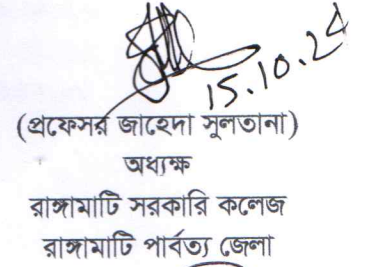 15.10.24
(প্রফেসর জাহেদা সুলতানা)
অধ্যক্ষ
রাঙ্গামাটি সরকারি কলেজ
রাঙ্গামাটি পার্বত্য জেলা